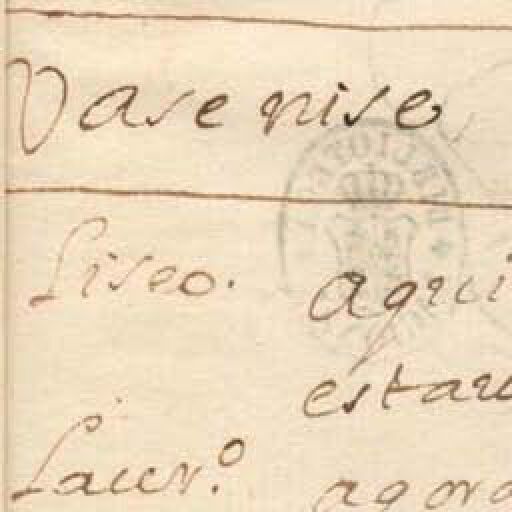 Vase niso
Liseo. aqui
estau
Laur.º agora